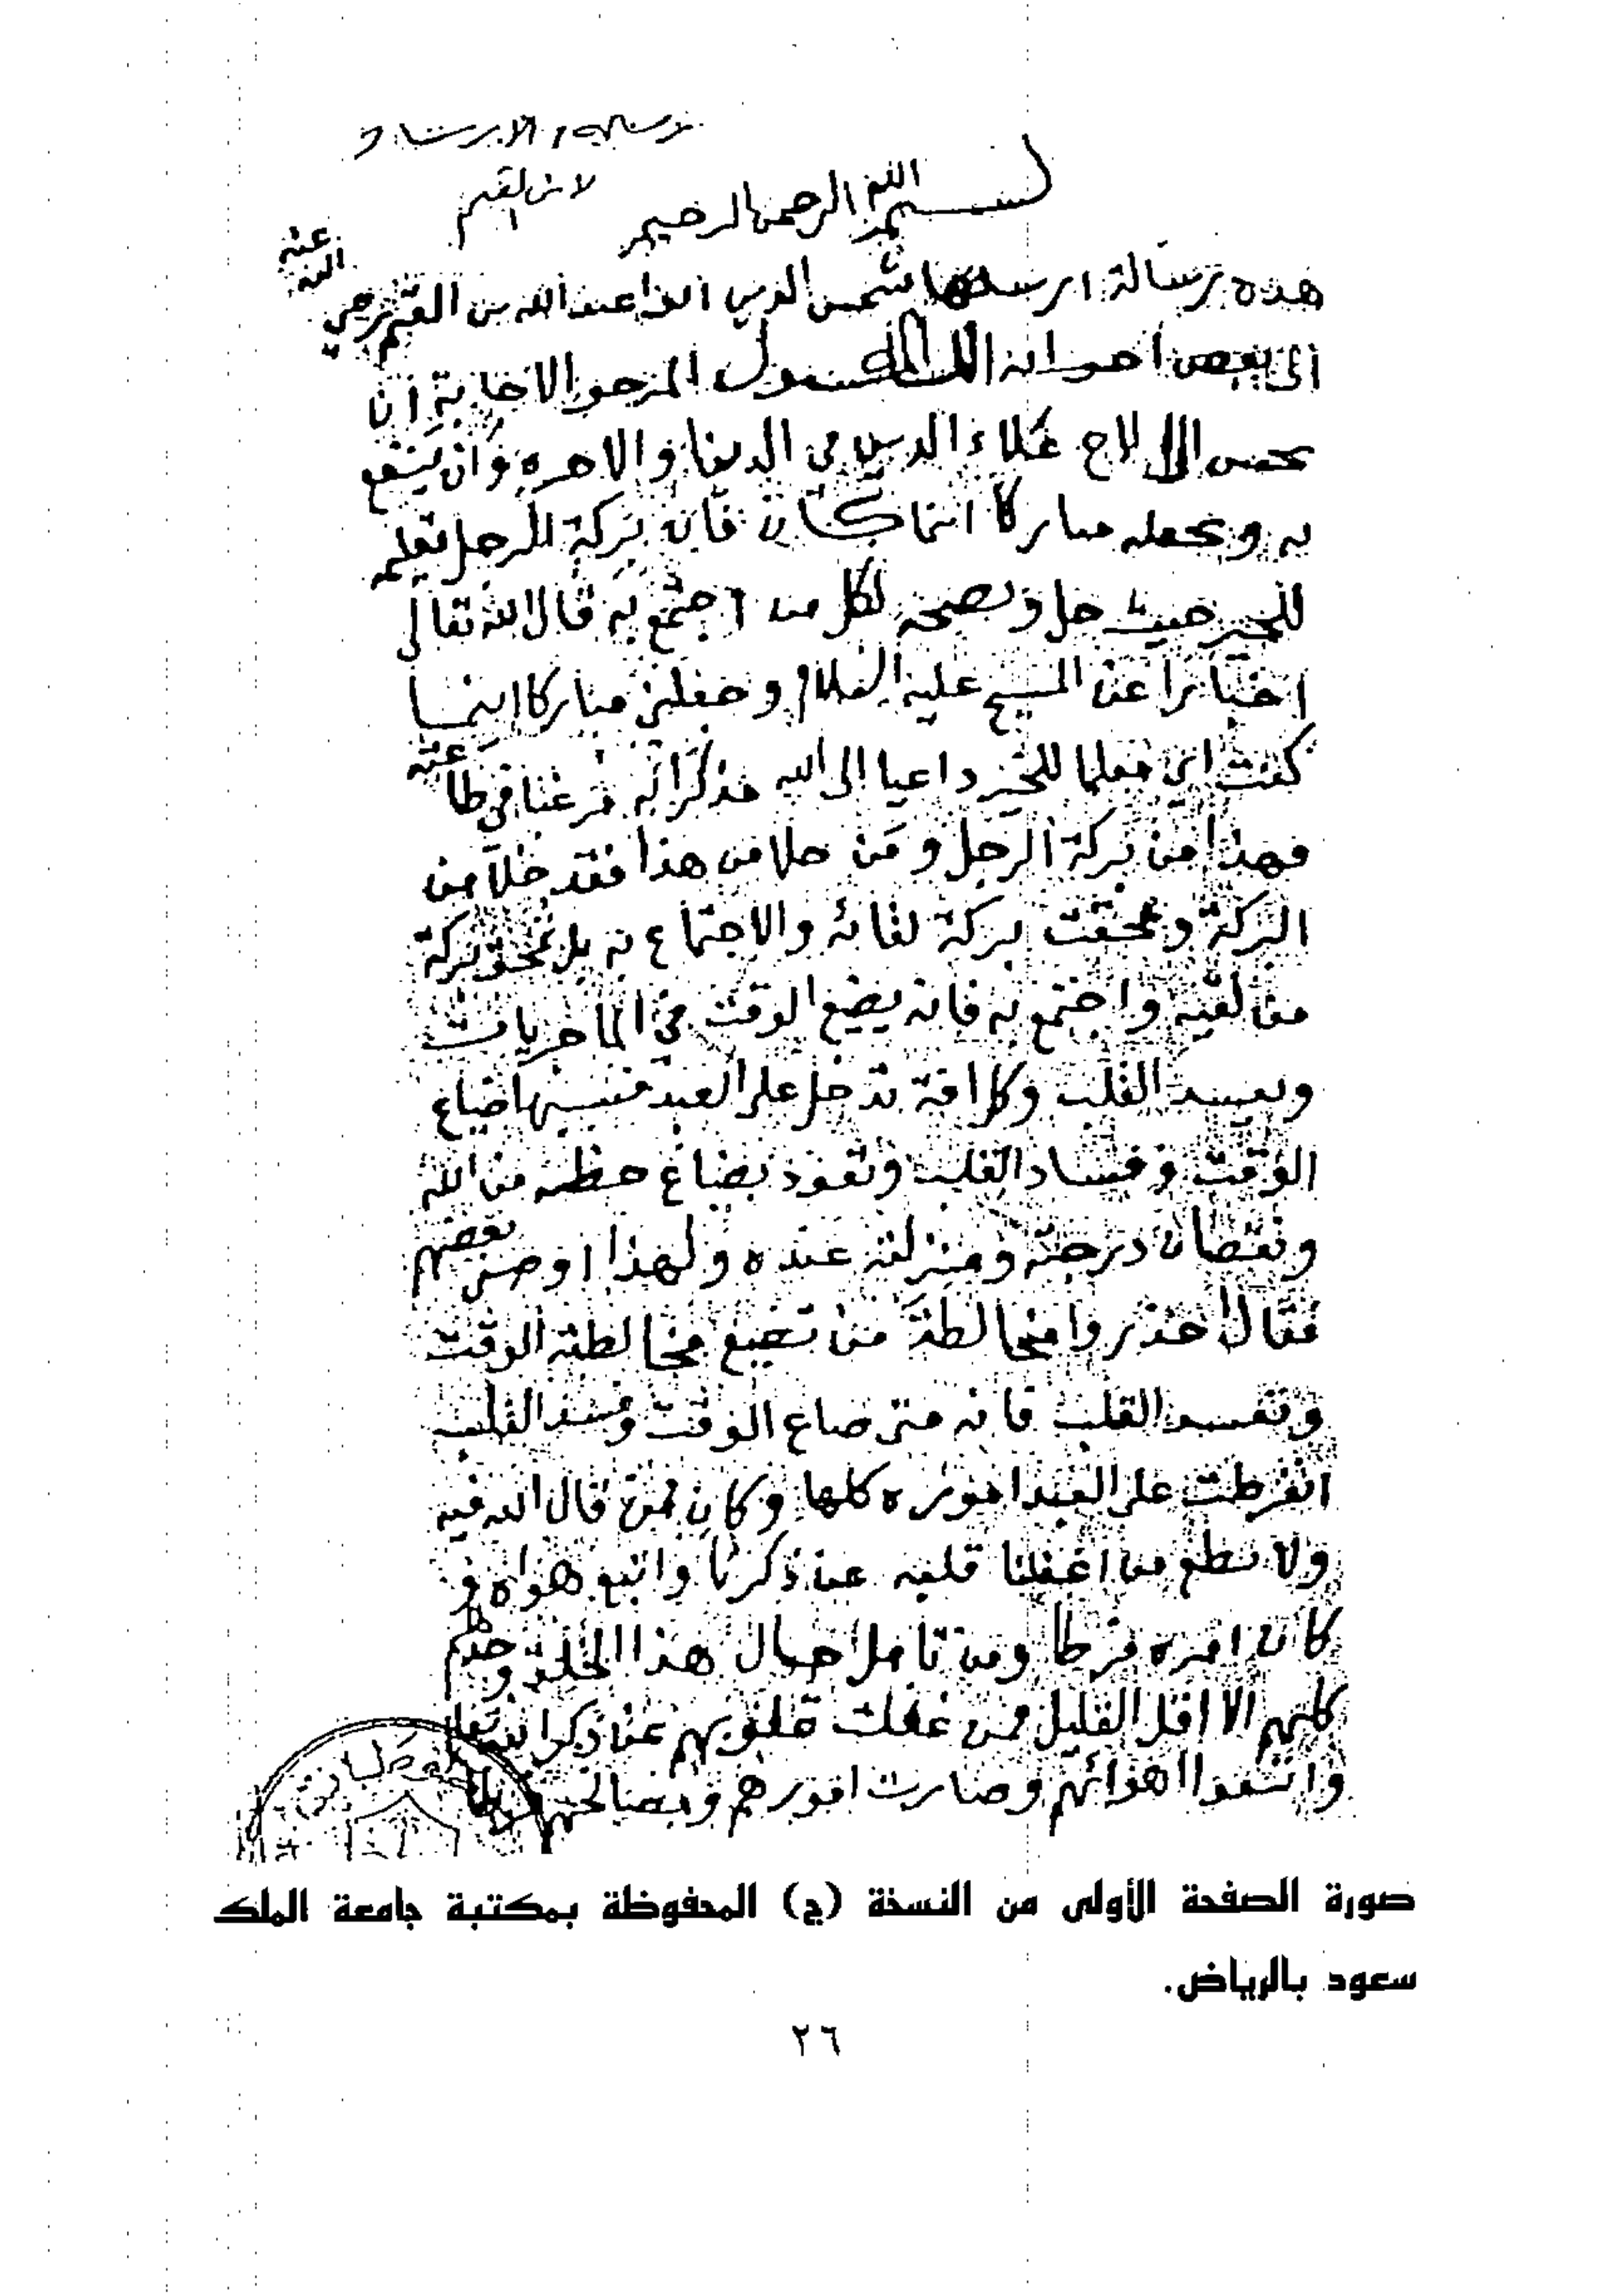 لابن القيم
بسم الله الرحمن الرحيم
هذه رسالة ارسلها شمس الدين ابو عبد الله بن القيم رضي الله عنه
الى بعض اخوانه الله المسئول المرجو الاجابة ان
يحسن الى الاخ علاء الدين في الدنيا والاخره وان ينفع
به ويجعله مباركا اينما كان فان بركة الرجل تعليمه
للخير حيث حل ونصحه لكل من اجتمع به قال الله تعالى
اخبارا عن المسيح عليه السلام وجعلني مباركا اينما
كنت اي معلما للخير داعيا الى الله مذكرا به مرغبا في طاعته
فهذا من بركة الرجل ومن خلا من هذا فقد خلا من
البركة ومحقت بركة لقائه والاجتماع به بل تمحق بركة
من لقيه واجتمع به فانه يضيع الوقت في الماجريات
ويفسد القلب وكل افة تدخل على العبد فسببها ضياع
الوقت وفساد القلب وتعود بضياع حظه من الله
ونقصان درجته ومنزلته عنده ولهذا اوصى بعضهم
فقال احذروا مخالطة من تضيع مخالطته الوقت
وتفسد القلب فانه متى ضاع الوقت وفسد القلب
انفرطت على العبد اموره كلها وكان ممن قال الله فيه
ولا تطع من اغفلنا قلبه عن ذكرنا واتبع هواه و
كان امره فرطا ومن تامل حال هذا الخلق وجدهم
كلهم الا اقل القليل ممن غفلت قلوبهم عن ذكر الله تعالى
واتبعوا اهوائهم وصارت امورهم ومصالحهم فرطا
صورة الصفحة الأولى من النسخة (ج) المحفوظة بمكتبة جامعة الملك
سعود بالرياض.
٢٦